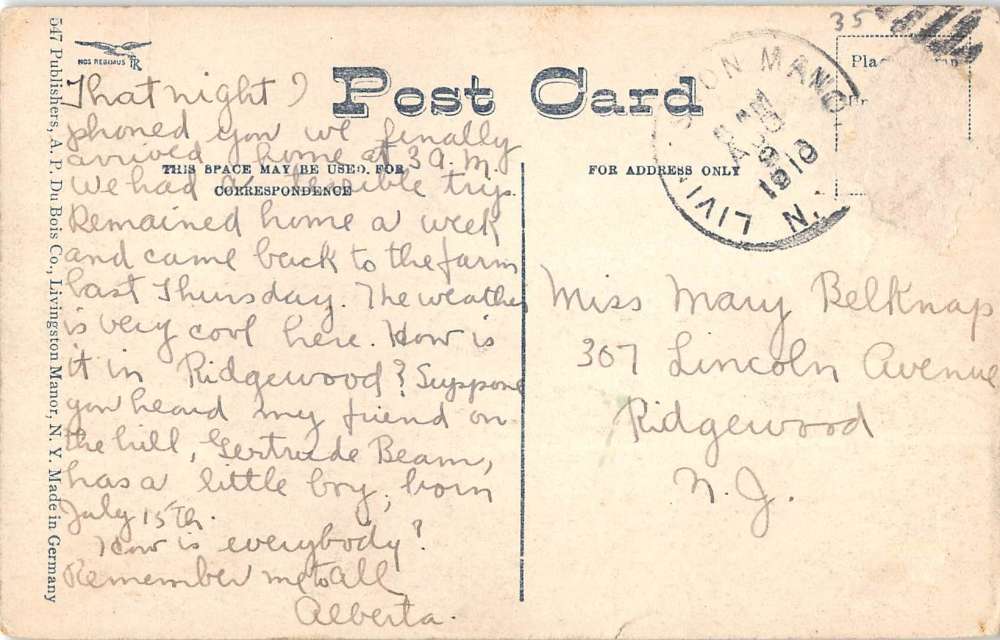 547 Publishers, A. P. Du Bois Co., Livingston Manor, N. Y. Made in Germany
NOS REGIMUS
Post Card
THIS SPACE MAY BE USED FOR
CORRESPONDENCE
That night I
phoned you we finally
arrived home at 3 A.M.
We had a terrible trip.
Remained home a week
and came back to the farm
last Thursday. The weather
is very cool here. How is
it in Ridgewood? Suppose
you heard my friend on
the hill, Gertrude Beam,
has a little boy, born
July 15th.
How is everybody?
Remember me to all
Alberta.
35
Pla
LIVI ON MANO N
1910
FOR ADDRESS ONLY
Miss Mary Belknap
307 Lincoln Avenue
Ridgewood
N. J.